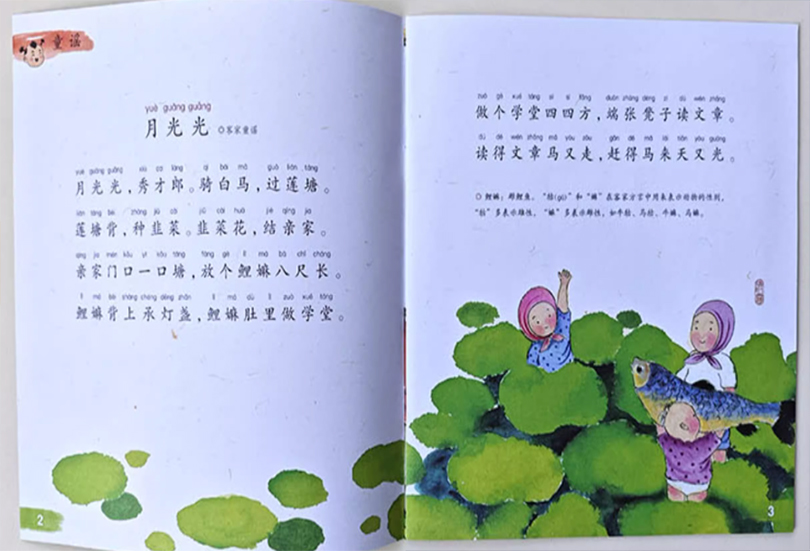 童谣
yuè guāng guāng
月光光
○客家童谣
yuè guāng guāng xiù cái láng qí bái mǎ guò lián táng
月光光，秀才郎。骑白马，过莲塘。
lián táng bèi zhòng jiǔ cài jiǔ cài huā jié qìng jia
莲塘背，种韭菜。韭菜花，结亲家。
qìng jia mén kǒu yì kǒu táng fàng gè lǐ mā bā chǐ cháng
亲家门口一口塘，放个鲤𫲗八尺长。
lǐ mā bèi shàng chéng dēng zhǎn lǐ mā dù lǐ zuò xué táng
鲤𫲗背上承灯盏，鲤𫲗肚里做学堂。
2
zuò gè xué táng sì sì fāng duān zhāng dèng zi dú wén zhāng
做个学堂四四方，端张凳子读文章。
dú dé wén zhāng mǎ yòu zǒu gǎn dé mǎ lái tiān yòu guāng
读得文章马又走，赶得马来天又光。
○ 鲤𫲗：即鲤鱼。“牯(gǔ)”和“𫲗”在客家方言中用来表示动物的性别，
“牯”多表示雄性，“𫲗”多表示雌性，如牛牯、马牯、牛𫲗、马𫲗。
3